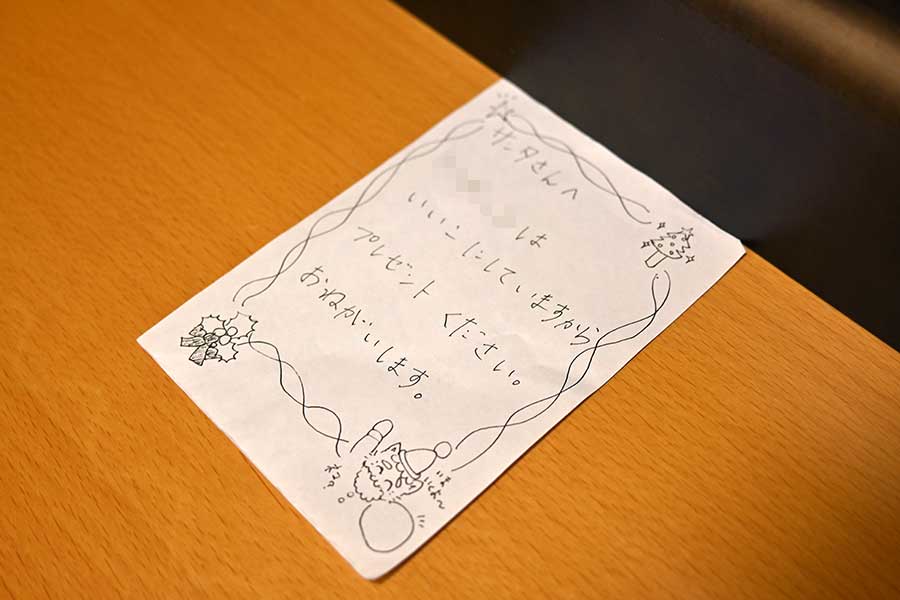 サンタさんへ
は
いいこ にしていますから
プレゼント ください。
おねがいします。